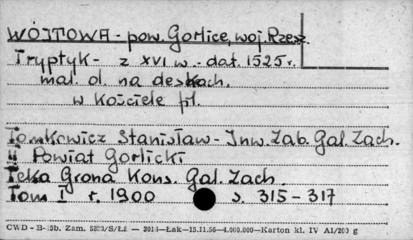 WÓJTOWA - pow. Gorlice, woj. Rzesz.
Tryptyk - z XVI w. - dat. 1525 r.
mal. ol. na deskach.
w kościele pf.
Tomkowicz Stanisław - Inw. Zab. Gal. Zach.
II Powiat Gorlicki
Teka Grona Kons. Gal. Zach
Tom I r. 1900 s. 315-317
CWD - B- Zam. — Łak—15.11.56—4.000.000—Karton kl. IV A1/200 g